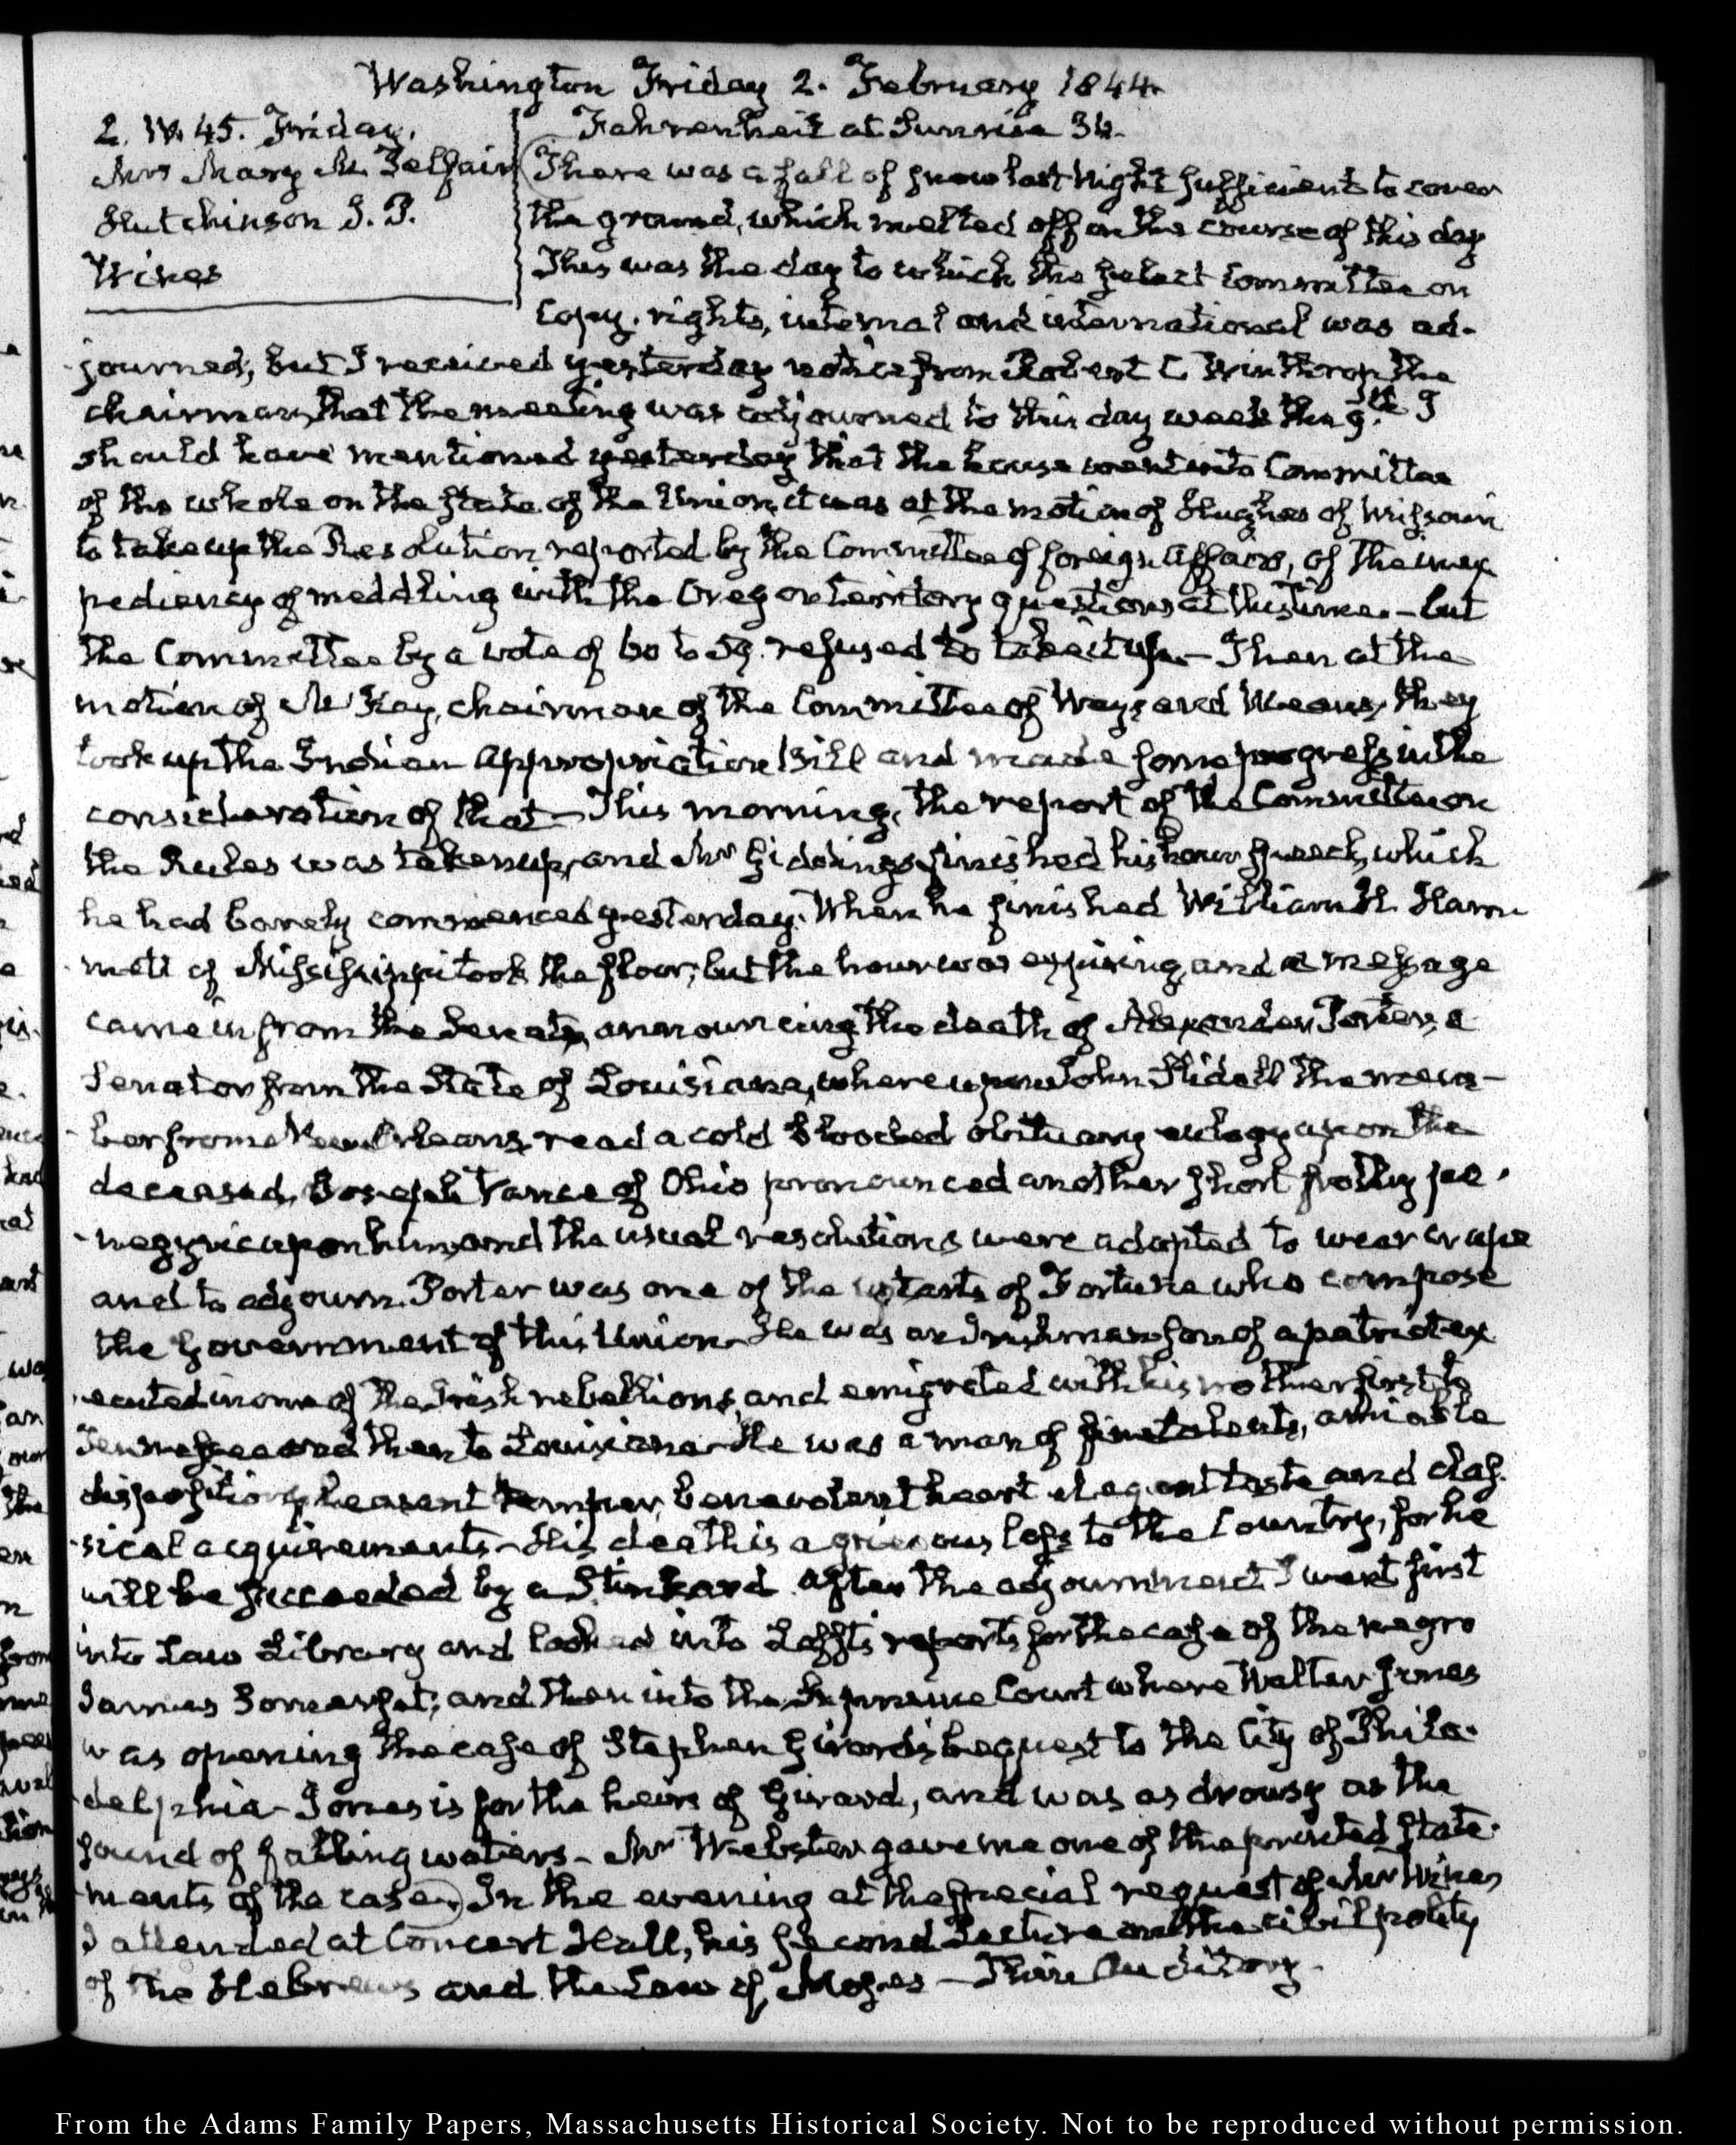 Washington Friday 2. February 1844.
2. IV. 45. Friday.
Mrs Mary M. Telfair
Hutchinson J. P.
Wines
Fahrenheit at Sunrise 34.
There was a fall of snow last Night sufficient to cover
the ground, which melted off in the course of this day
This was the day to which the select Committee on
Copy-rights, internal and international was ad-
journed; but I received yesterday notice from Robert C Winthrop the
chairman, that the meeting was adjourned to this day week the 9th. I
should have mentioned yesterday that the house went into Committee
of the whole on the State of the Union, it was at the motion of Hughes of Missouri
to take up the Resolution reported by the Committee of foreign Affairs, of the inex
pediency of meddling with the Oregon territory questions at this time.—but
the Committee by a vote of 60 to 59. refused to take it up.—Then at the
motion of McKay, chairman of the Committee of Ways and Means, they
took up the Indian Appropriation Bill and made some progress in the
consideration of that—This morning, the report of the Committee on
the Rules was taken up, and Mr Giddings finished his hour speech, which
he had barely commenced yesterday. When he finished William H. Hamm
-mett of Mississippi took the floor; but the hour was expiring, and a message
came in from the Senate, announcing the death of Alexander Porter, a
Senator from the State of Louisiana, whereupon John Slidell the mem-
-ber from New Orleans, read a cold blooded obituary eulogy upon the
deceased, Joseph Vance of Ohio pronounced another short frothy pa-
-negyric upon him, and the usual resolutions were adopted to wear crape
and to adjourn. Porter was one of the upstarts of Fortune who compose
the Government of this Union—He was an Irishman son of a patriot ex
-ecuted in one of the Irish rebellions, and emigrated with his mother first to
Tennessee and then to Louisiana—He was a man of fine talents, amiable
disposition, pleasant temper, benevolent heart elegant taste and clas-
-sical acquirements—His death is a grievous loss to the Country, for he
will be succeeded by a Stinkard. After the adjournment I went first
into Law Library and looked into Lofft's reports for the case of the negro
James Somerset; and then into the Supreme Court where Walter Jones
was opening the case of Stephen Girard's bequest to the City of Phila-
-delphia—Jones is for the heirs of Girard, and was as drowsy as the
sound of falling waters—Mr Webster gave me one of the printed state-
-ments of the case. In the evening at the special request of Mr Wines
I attended at Concert Hall, his second Lecture on the civil polity
of the Hebrews and the Law of Moses—Thin Auditory.
From the Adams Family Papers, Massachusetts Historical Society. Not to be reproduced without permission.